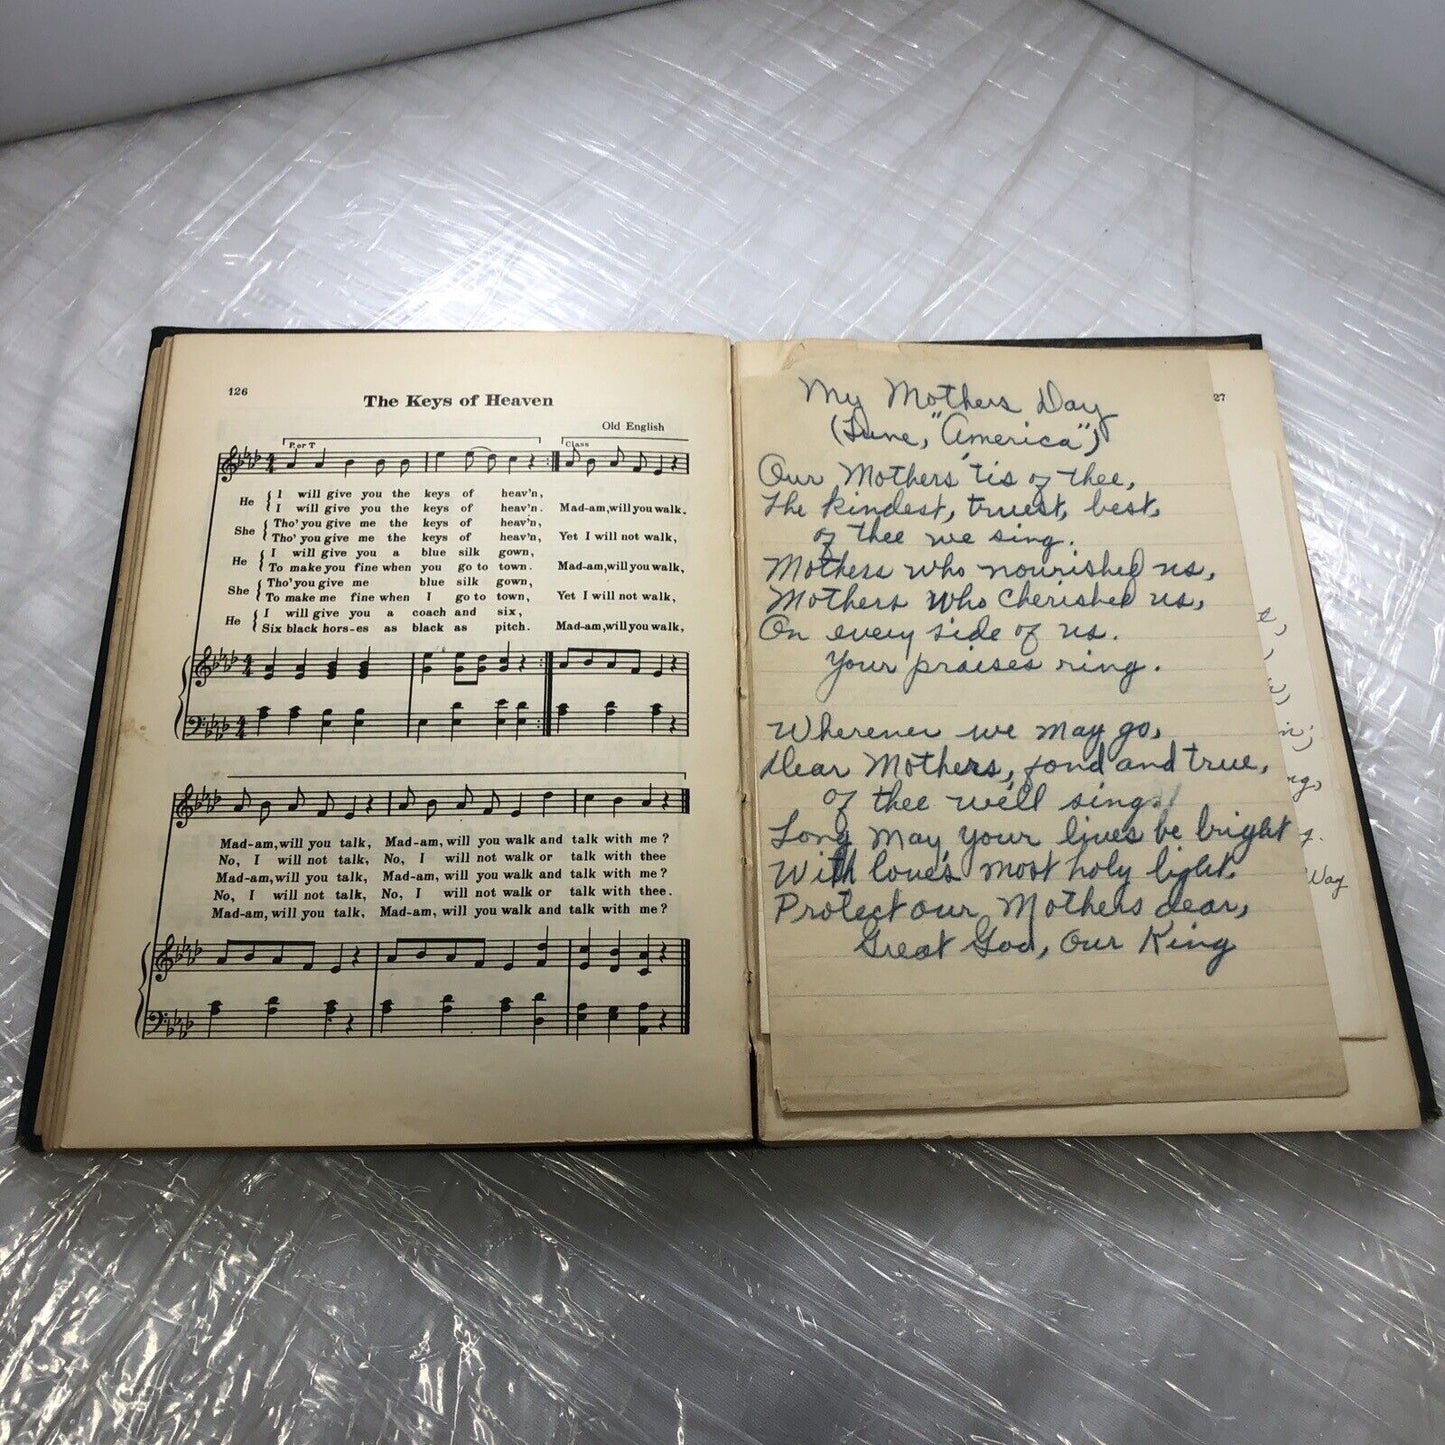 126
The Keys of Heaven
Old English
P. or T
Class
He { I will give you the keys of heav'n,
I will give you the keys of heav'n. Mad-am, will you walk.
She { Tho' you give me the keys of heav'n,
Tho' you give me the keys of heav'n, Yet I will not walk,
He { I will give you a blue silk gown,
To make you fine when you go to town. Mad-am, will you walk,
She { Tho' you give me blue silk gown,
To make me fine when I go to town, Yet I will not walk,
He { I will give you a coach and six,
Six black hors-es as black as pitch. Mad-am, will you walk,
Mad-am, will you talk, Mad-am, will you walk and talk with me?
No, I will not talk, No, I will not walk or talk with thee
Mad-am, will you talk, Mad-am, will you walk and talk with me?
No, I will not talk, No, I will not walk or talk with thee.
Mad-am, will you talk, Mad-am, will you walk and talk with me?
27
My Mothers Day
(Tune, "America")
Our Mothers 'tis of thee,
The kindest, truest, best,
of thee we sing.
Mothers who nourished us,
Mothers who cherished us,
On every side of us.
Your praises ring.
Wherever we may go,
Dear Mothers, fond and true,
of thee we'll sing
Long may your lives be bright
With love's most holy light.
Protect our Mothers dear,
Great God, Our King
Way